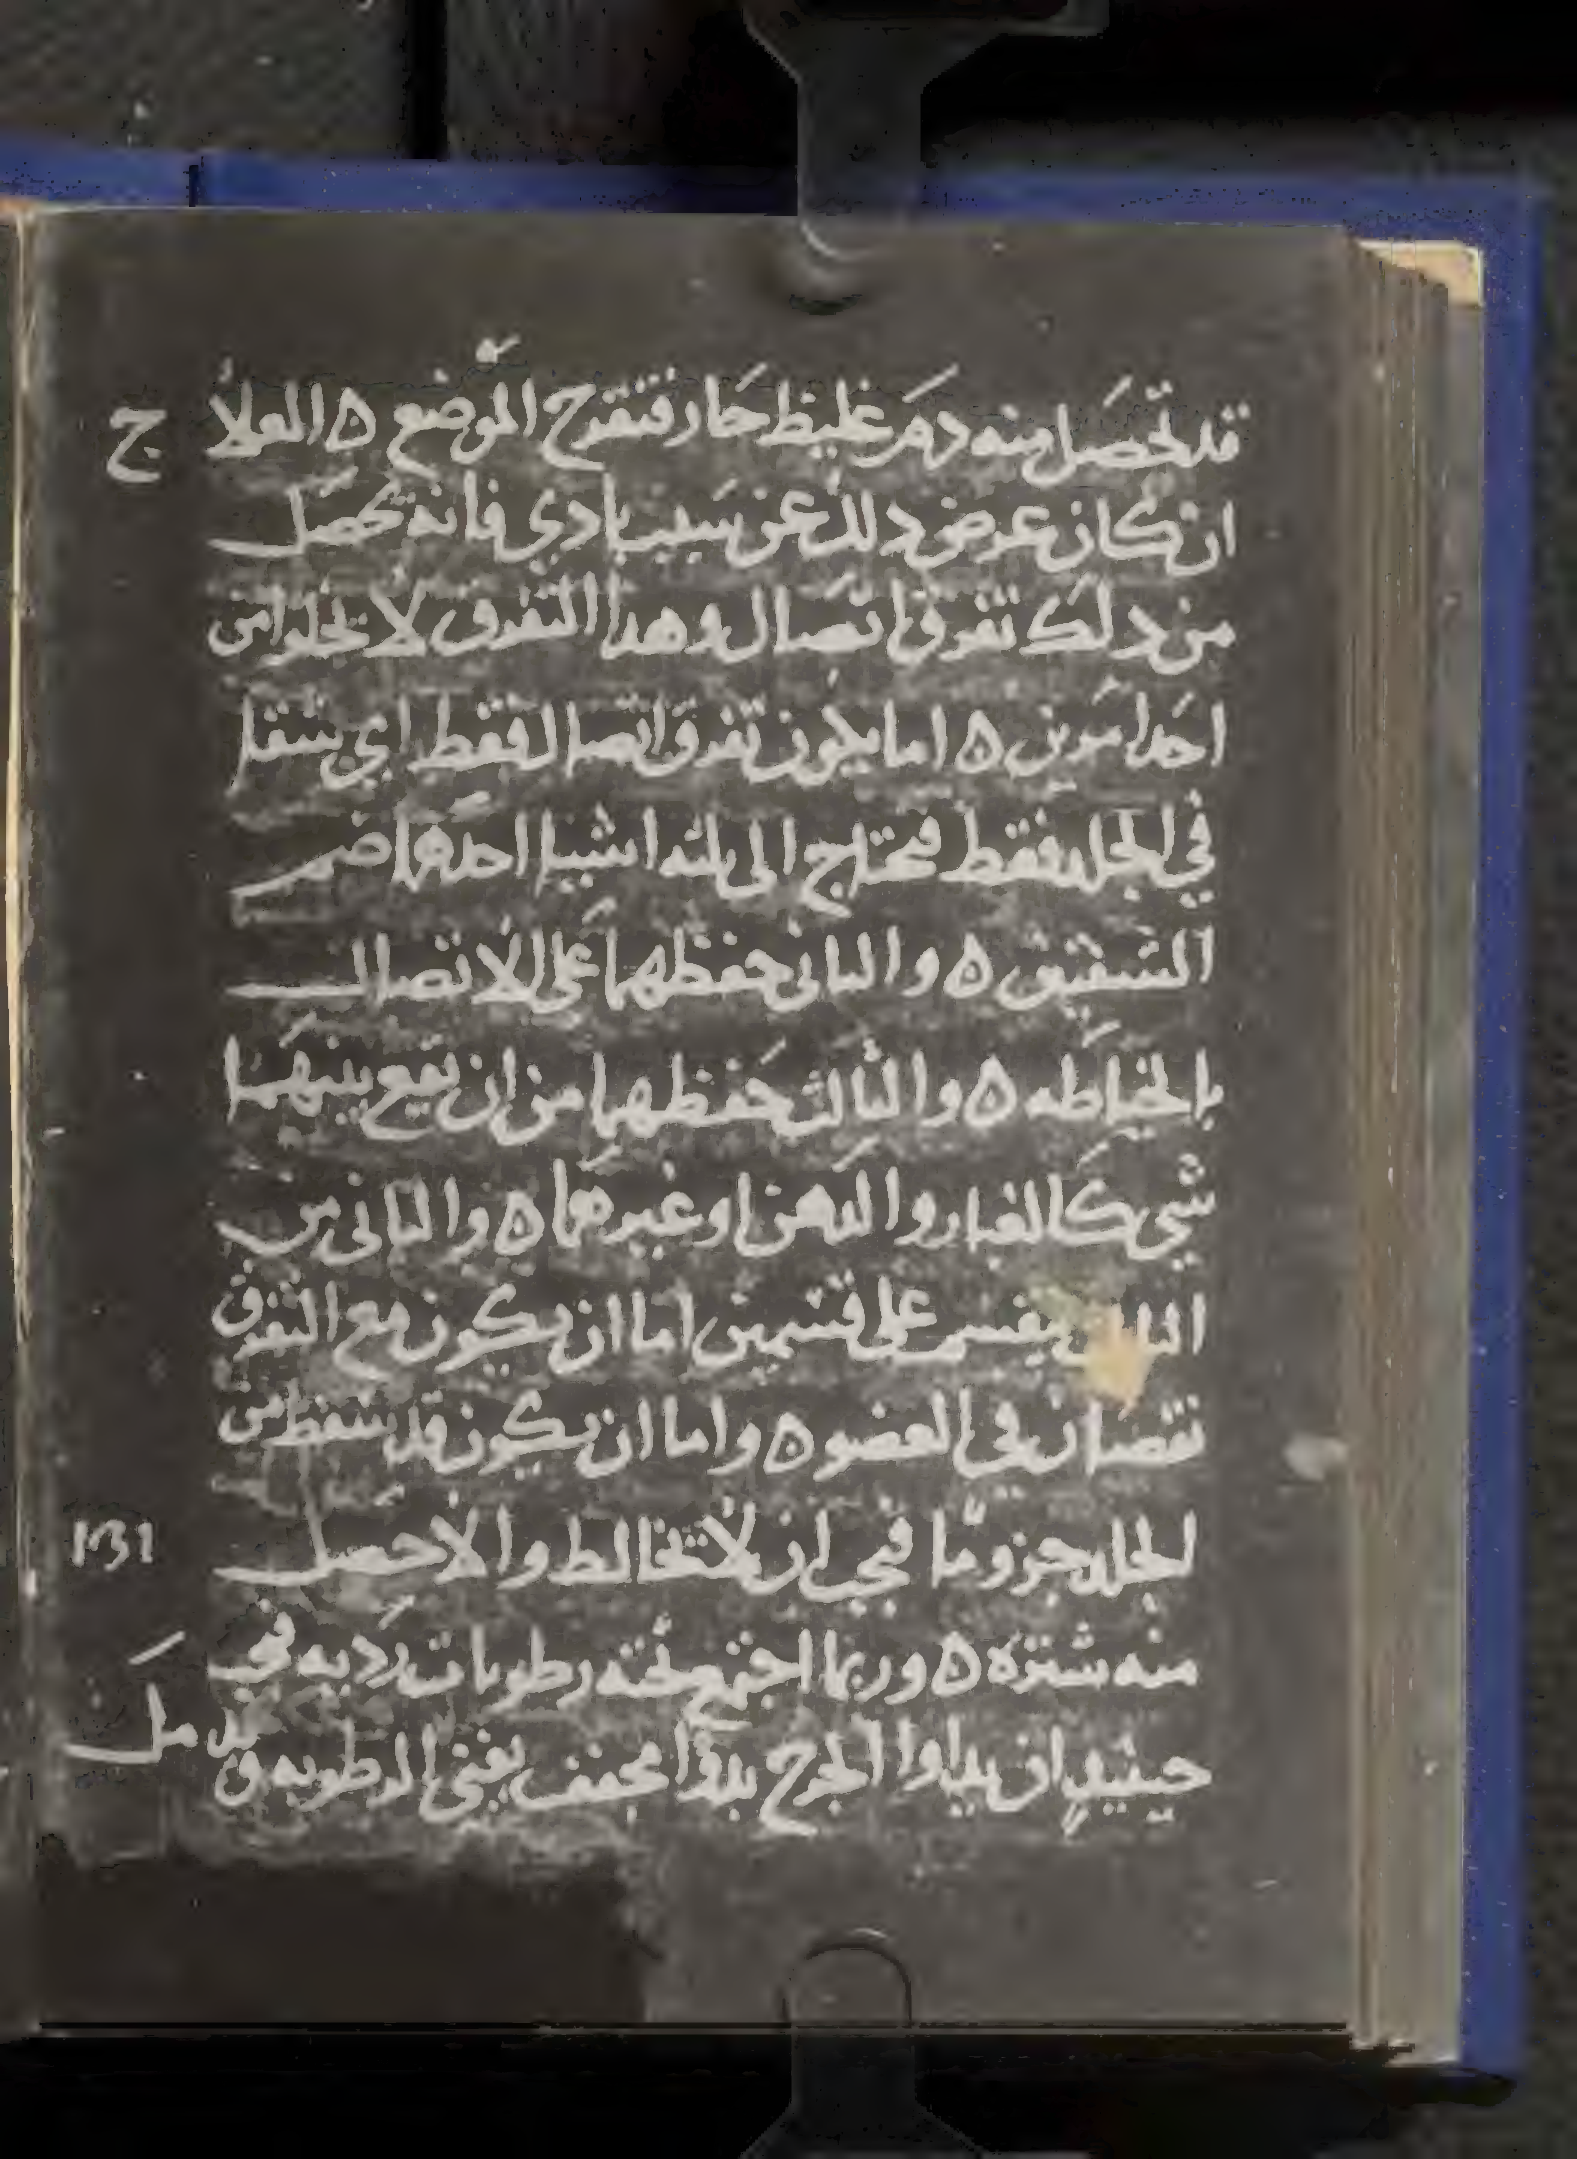 قد تحصل منه دم غليظ حار فتقرح الموضع ه العلا
ج
ان كان عرض دلك عن سبب بادي فانه تحصل
من دلك تفرق اتصال وهدا التفرق لا يخلوا من
احد امرين ه اما يكون تفرق اتصال فقط اي
في الجلد فقط فيحتاج الى ثلثه اشيا احدها ضم
الشفتين ه والثاني حفظهما على الاتصال
بالخياطه ه والثالث حفظهما من ان يقع بينهما
شي كالغبار والدهن او غيرهما ه والثاني من
ينقسم على قسمين اما ان يكون مع التفرق
نقصان في العضو ه واما ان يكون قد سقط من
الجلد جزو ما فيجب ان لا تخالط والا حصل
١٣١
منه شتره ه وربما اجتمع تحته رطوبات رديه فيجب
حينيد ان يداوا الجرح بدوا مجفف يفني الرطوبه